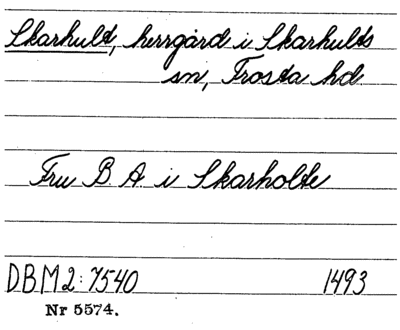 Skarhult, herrgård i Skarhults
sn, Frosta hd
Fru B. A. i Skarholte
DBM2:7540 1493
Nr 5574.